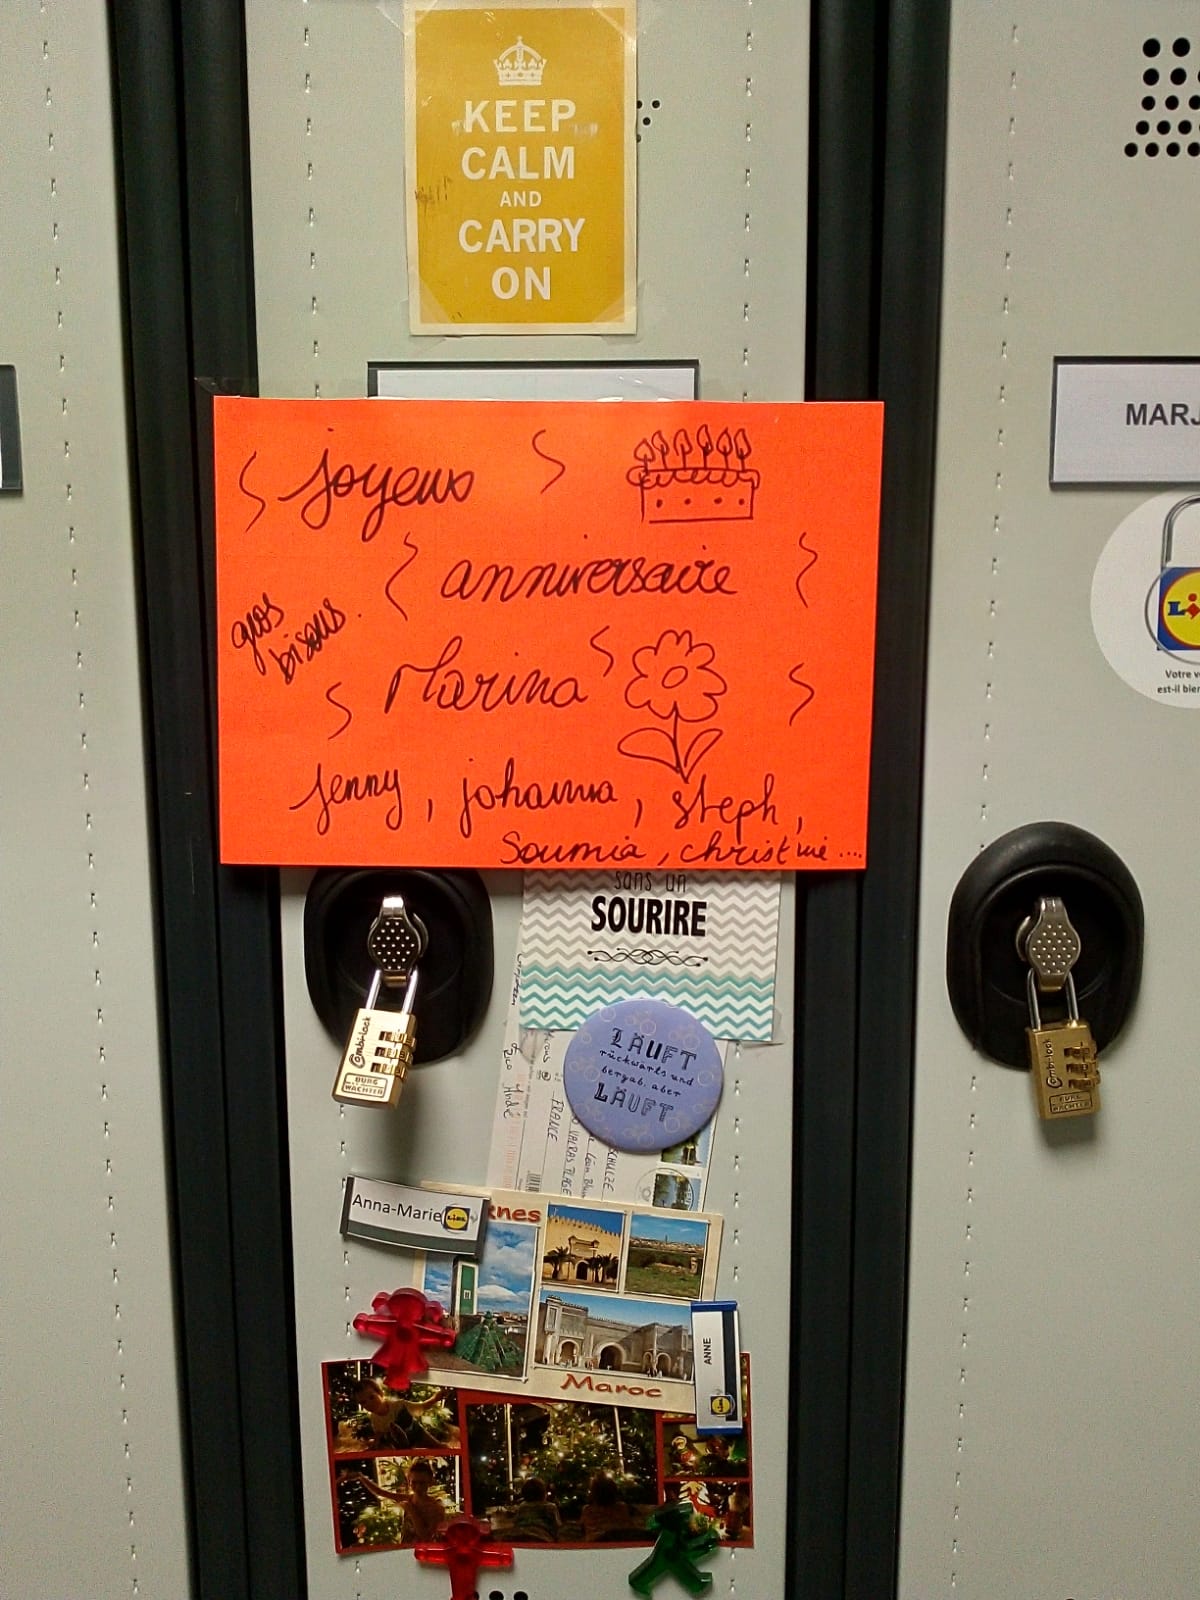 KEEP
CALM
AND
CARRY
ON
MARJ
joyeux
anniversaire
gros
bisous.
Marina
Jenny, johanna, steph,
Soumia, christine ....
Votre v
est-il bien
sans un
SOURIRE
LÄUFT
rückwärts und
bergab, aber
LÄUFT
Combi-lock
BURG
WÄCHTER
Combi-lock
BURG
WÄCHTER
André
FRANCE
VALRAS PLAGE
SCHULZE
Anna-Marie
LIDL
knes
ANNE
Maroc